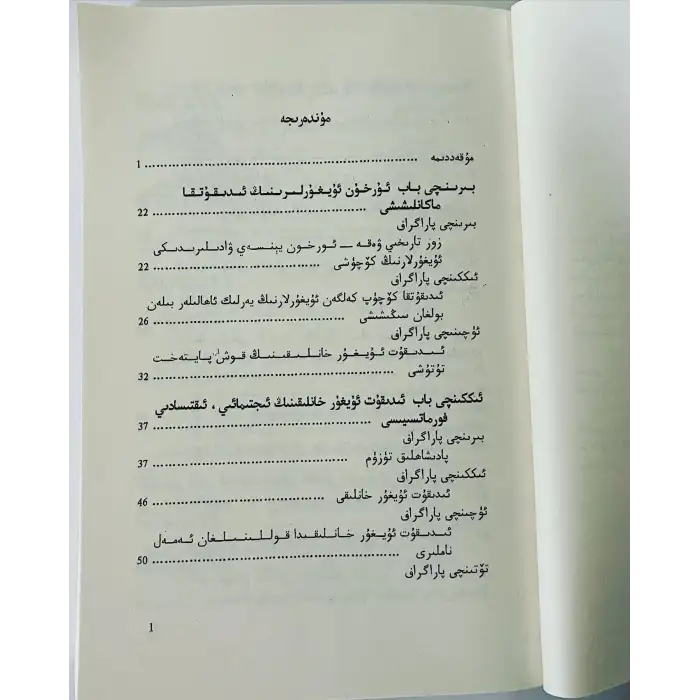 مۇندەرىجە
مۇقەددىمە ........................................ 1
بىرىنچى باب ئۇرخۇن ئۇيغۇرلىرىنىڭ ئىدىقۇتقا
ماكانلىشىشى ........................................ 22
بىرىنچى پاراگراف
زور تارىخىي ۋەقە — ئورخون يېنسەي ۋادىلىرىدىكى
ئۇيغۇرلارنىڭ كۆچۈشى ........................................ 22
ئىككىنچى پاراگراف
ئىدىقۇتقا كۆچۈپ كەلگەن ئۇيغۇرلارنىڭ يەرلىك ئاھالىلەر بىلەن
بولغان سىڭىشىشى ........................................ 26
ئۈچىنچى پاراگراف
ئىدىقۇت ئۇيغۇر خانلىقىنىڭ قوش پايتەخت
تۇتۇشى ........................................ 32
ئىككىنچى باب ئىدىقۇت ئۇيغۇر خانلىقىنىڭ ئىجتىمائىي ، ئىقتىسادىي
فورماتسىيىسى ........................................ 37
بىرىنچى پاراگراف
پادىشاھلىق تۈزۈم ........................................ 37
ئىككىنچى پاراگراف
ئىدىقۇت ئۇيغۇر خانلىقى ........................................ 46
ئۈچىنچى پاراگراف
ئىدىقۇت ئۇيغۇر خانلىقىدا قوللىنىلغان ئەمەل
ناملىرى ........................................ 50
تۆتىنچى پاراگراف
1